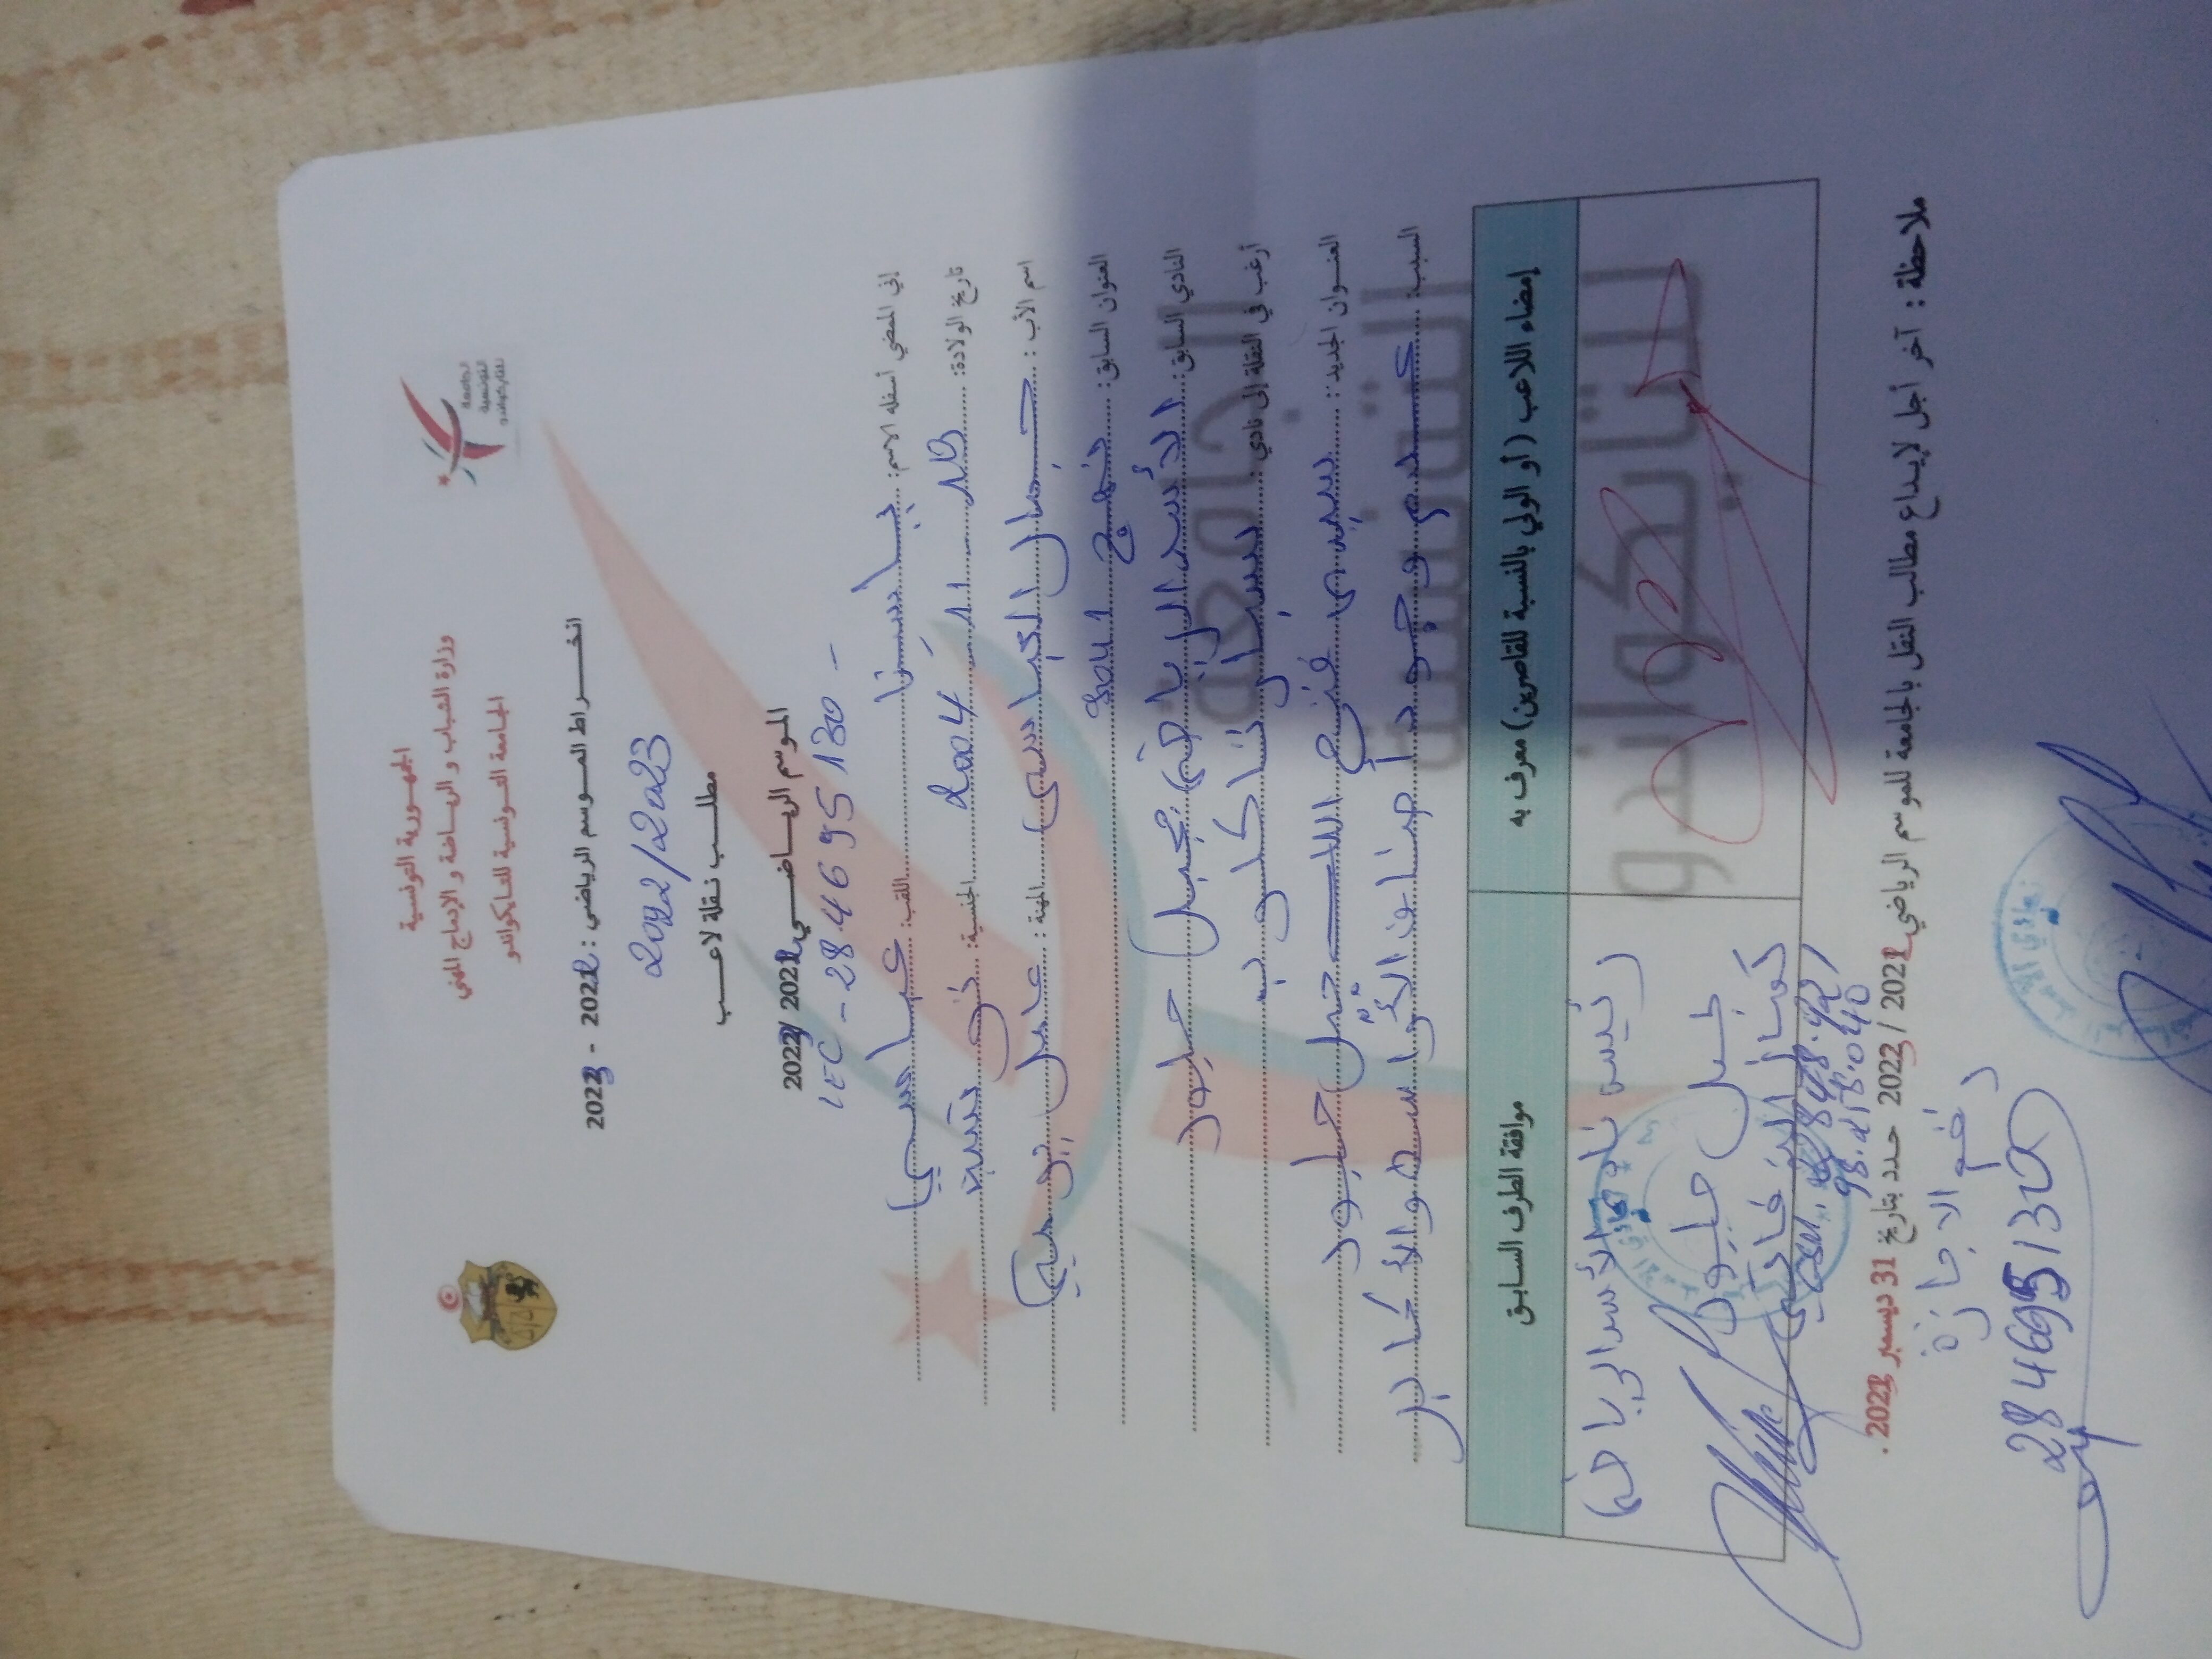 الجمهورية التونسية
وزارة الشباب و الرياضة و الإدماج المهني
الجامعة التونسية للتايكواندو
الجامعة
التونسية
للتايكواندو
انخــراط المـوسم الرياضي : 2022 - 2023
2022/2023
مطلــب نقلة لاعــب
الموسم الريــاضــي 2022/ 2023
LEC - 28.4695130 -
إني الممضي أسفله الاسم: يـاسـنـا اللقب: عبـاسـي
تاريخ الولادة: 18 11 2004 الجنسية: تونسية
اسم الأب : جمال العباسي المهنة : عامل يومي
العنوان السابق: نهج 8041
النادي السابق: الأسد الرياضي بجبل جلود
أرغب في النقلة إلى نادي: سـبـار تـاكـلوب
العنـوان الجديد: سيدي فتح اللـه جبل جلود
السبب: عدم وجود أصناف الأواسط والأكابر
إمضاء اللاعب ( أو الولي بالنسبة للقاصرين) معرف به
موافقة الطرف السابق
الجامعة
التونسية
للتايكواندو
رئيس نادي الأسد الرياضي
جبل جلود
كمال
98.218.040
ملاحظة : آخر أجل لإيداع مطالب النقل بالجامعة للموسم الرياضي 2022/ 2023 حدد بتاريخ 31 ديسمبر 2022 .
رقم الاجازة
284695130